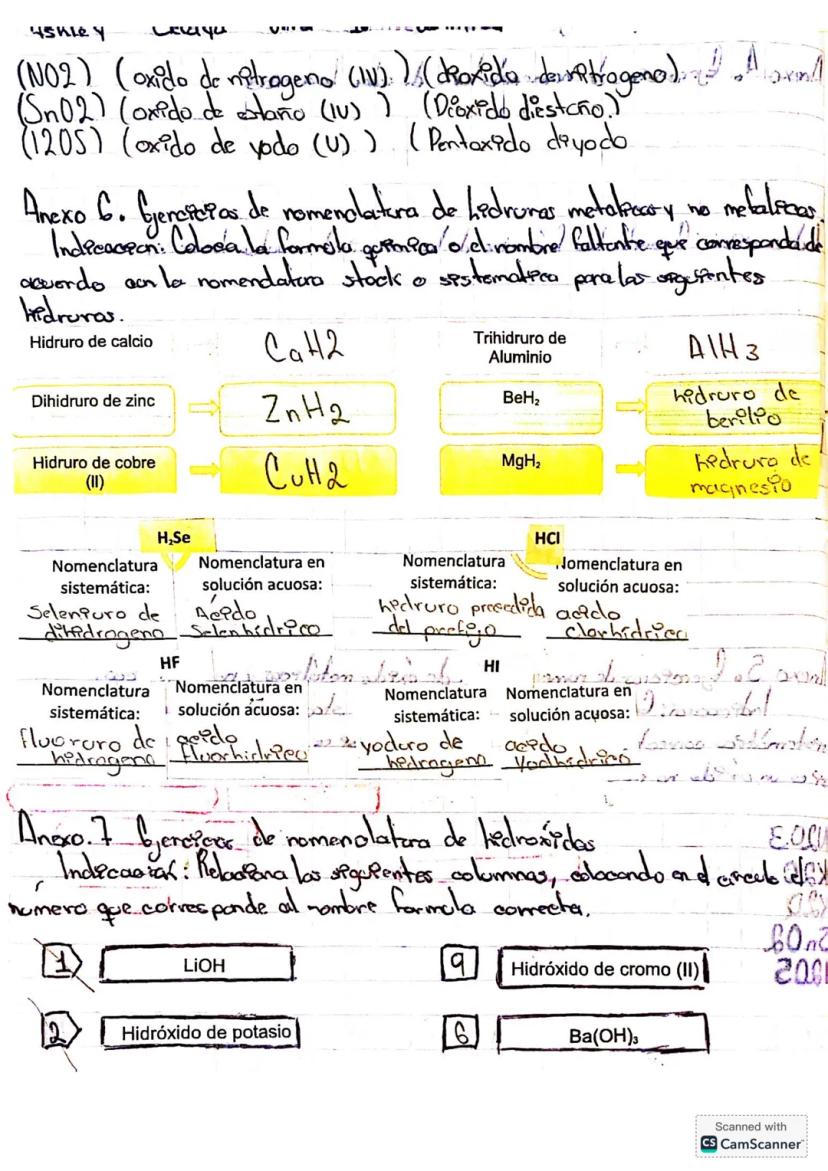 Ashley
(NO2) (oxido de nitrogeno (IV)) (dioxido de nitrogeno)
(SnO2) (oxido de estaño (IV) ) (Dioxido diestaño.)
(I2O5) (oxido de yodo (V) ) (Pentaxido diyodo
Anexo 6. Ejercicios de nomenclatura de hidruros metalicos y no metalicos.
Indicacion: Coloca la formula quimica o el nombre faltante que corresponda de
acuerdo con la nomenclatura stock o sistematica para las siguientes
hidruros.
Hidruro de calcio CaH2 Trihidruro de Aluminio AlH3
Dihidruro de zinc ZnH2 BeH₂ hidruro de berilio
Hidruro de cobre (II) CuH2 MgH₂ hidruro de magnesio
H₂Se HCl
Nomenclatura sistemática: Nomenclatura en solución acuosa: Nomenclatura sistemática: Nomenclatura en solución acuosa:
Seleniuro de dihidrogeno Acido Selenhidrico hidruro precedida del prefijo acido clorhidrico
HF HI
Nomenclatura sistemática: Nomenclatura en solución acuosa: Nomenclatura sistemática: Nomenclatura en solución acuosa:
fluoruro de hidrogeno acido fluorhidrico yoduro de hidrogeno acido Yodhidrico
Anexo.7 Ejercicios de nomenclatura de hidroxidos
Indicacion: Relaciona las siguientes columnas, colocando en el circulo el
numero que corresponde al nombre formula correcta.
1 LiOH 9 Hidróxido de cromo (II)
2 Hidróxido de potasio 6 Ba(OH)₃
Scanned with
CS CamScanner